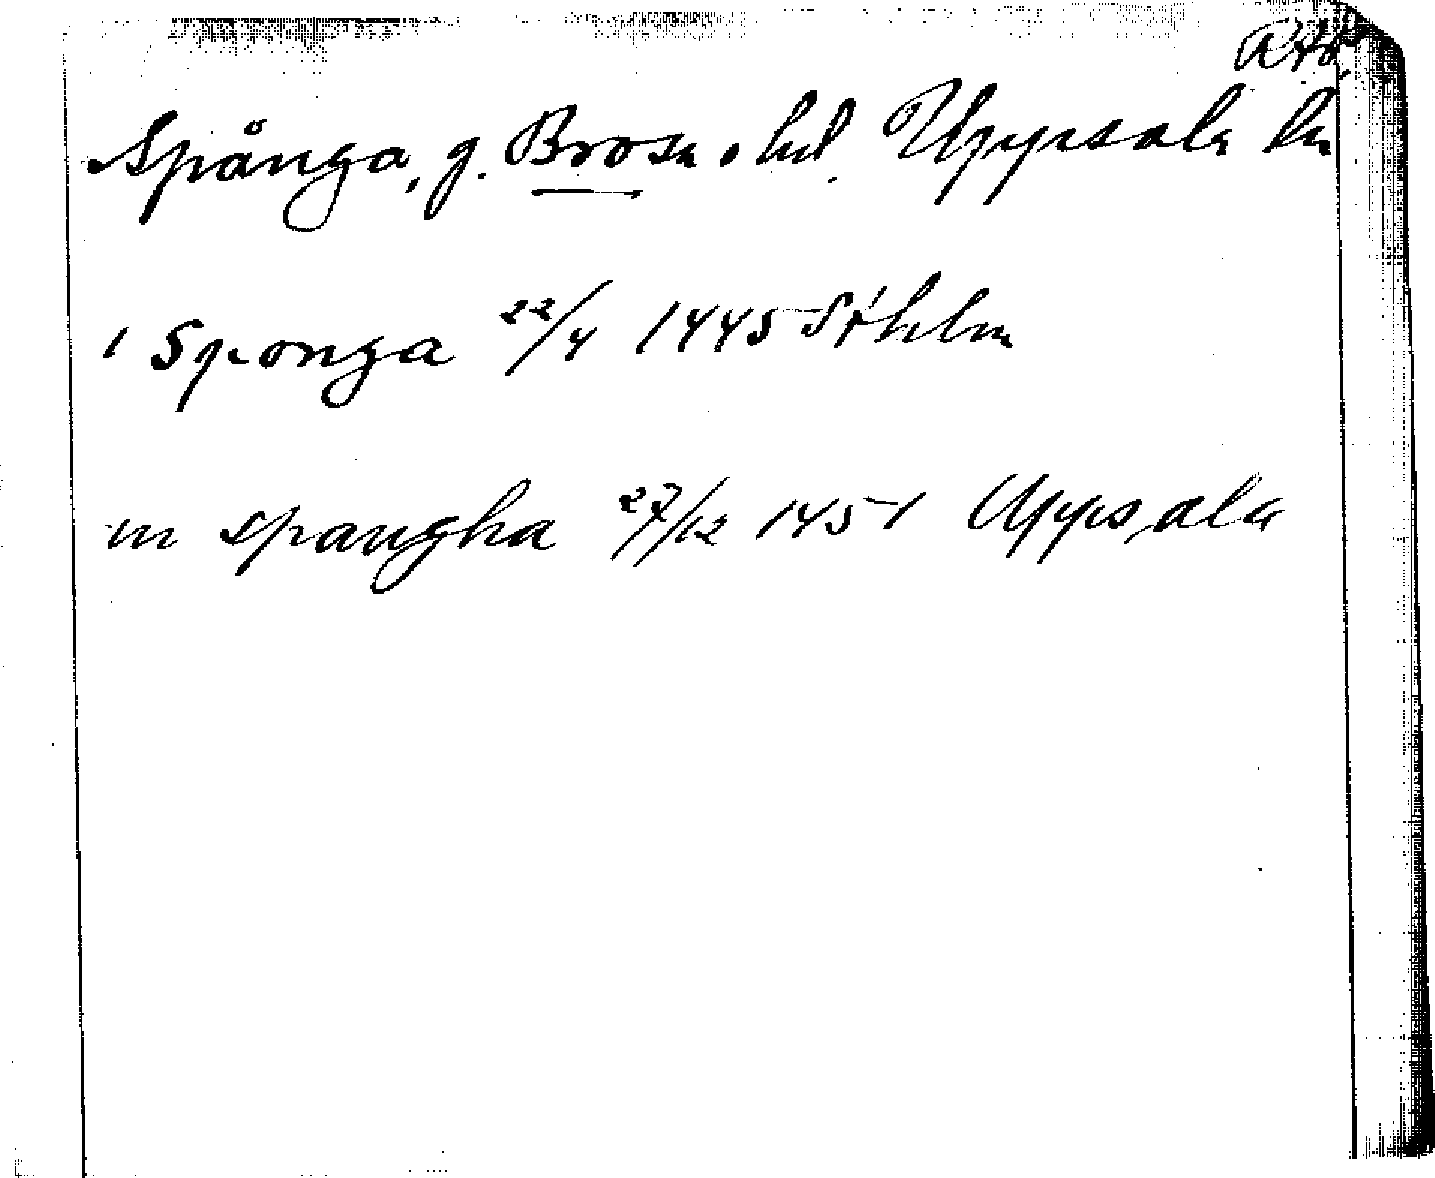 Spånga, g. Bro sn o. hd. Uppsala län
i Sponga 22/4 1445 Sthlm
in spangha 27/12 1451 Uppsala